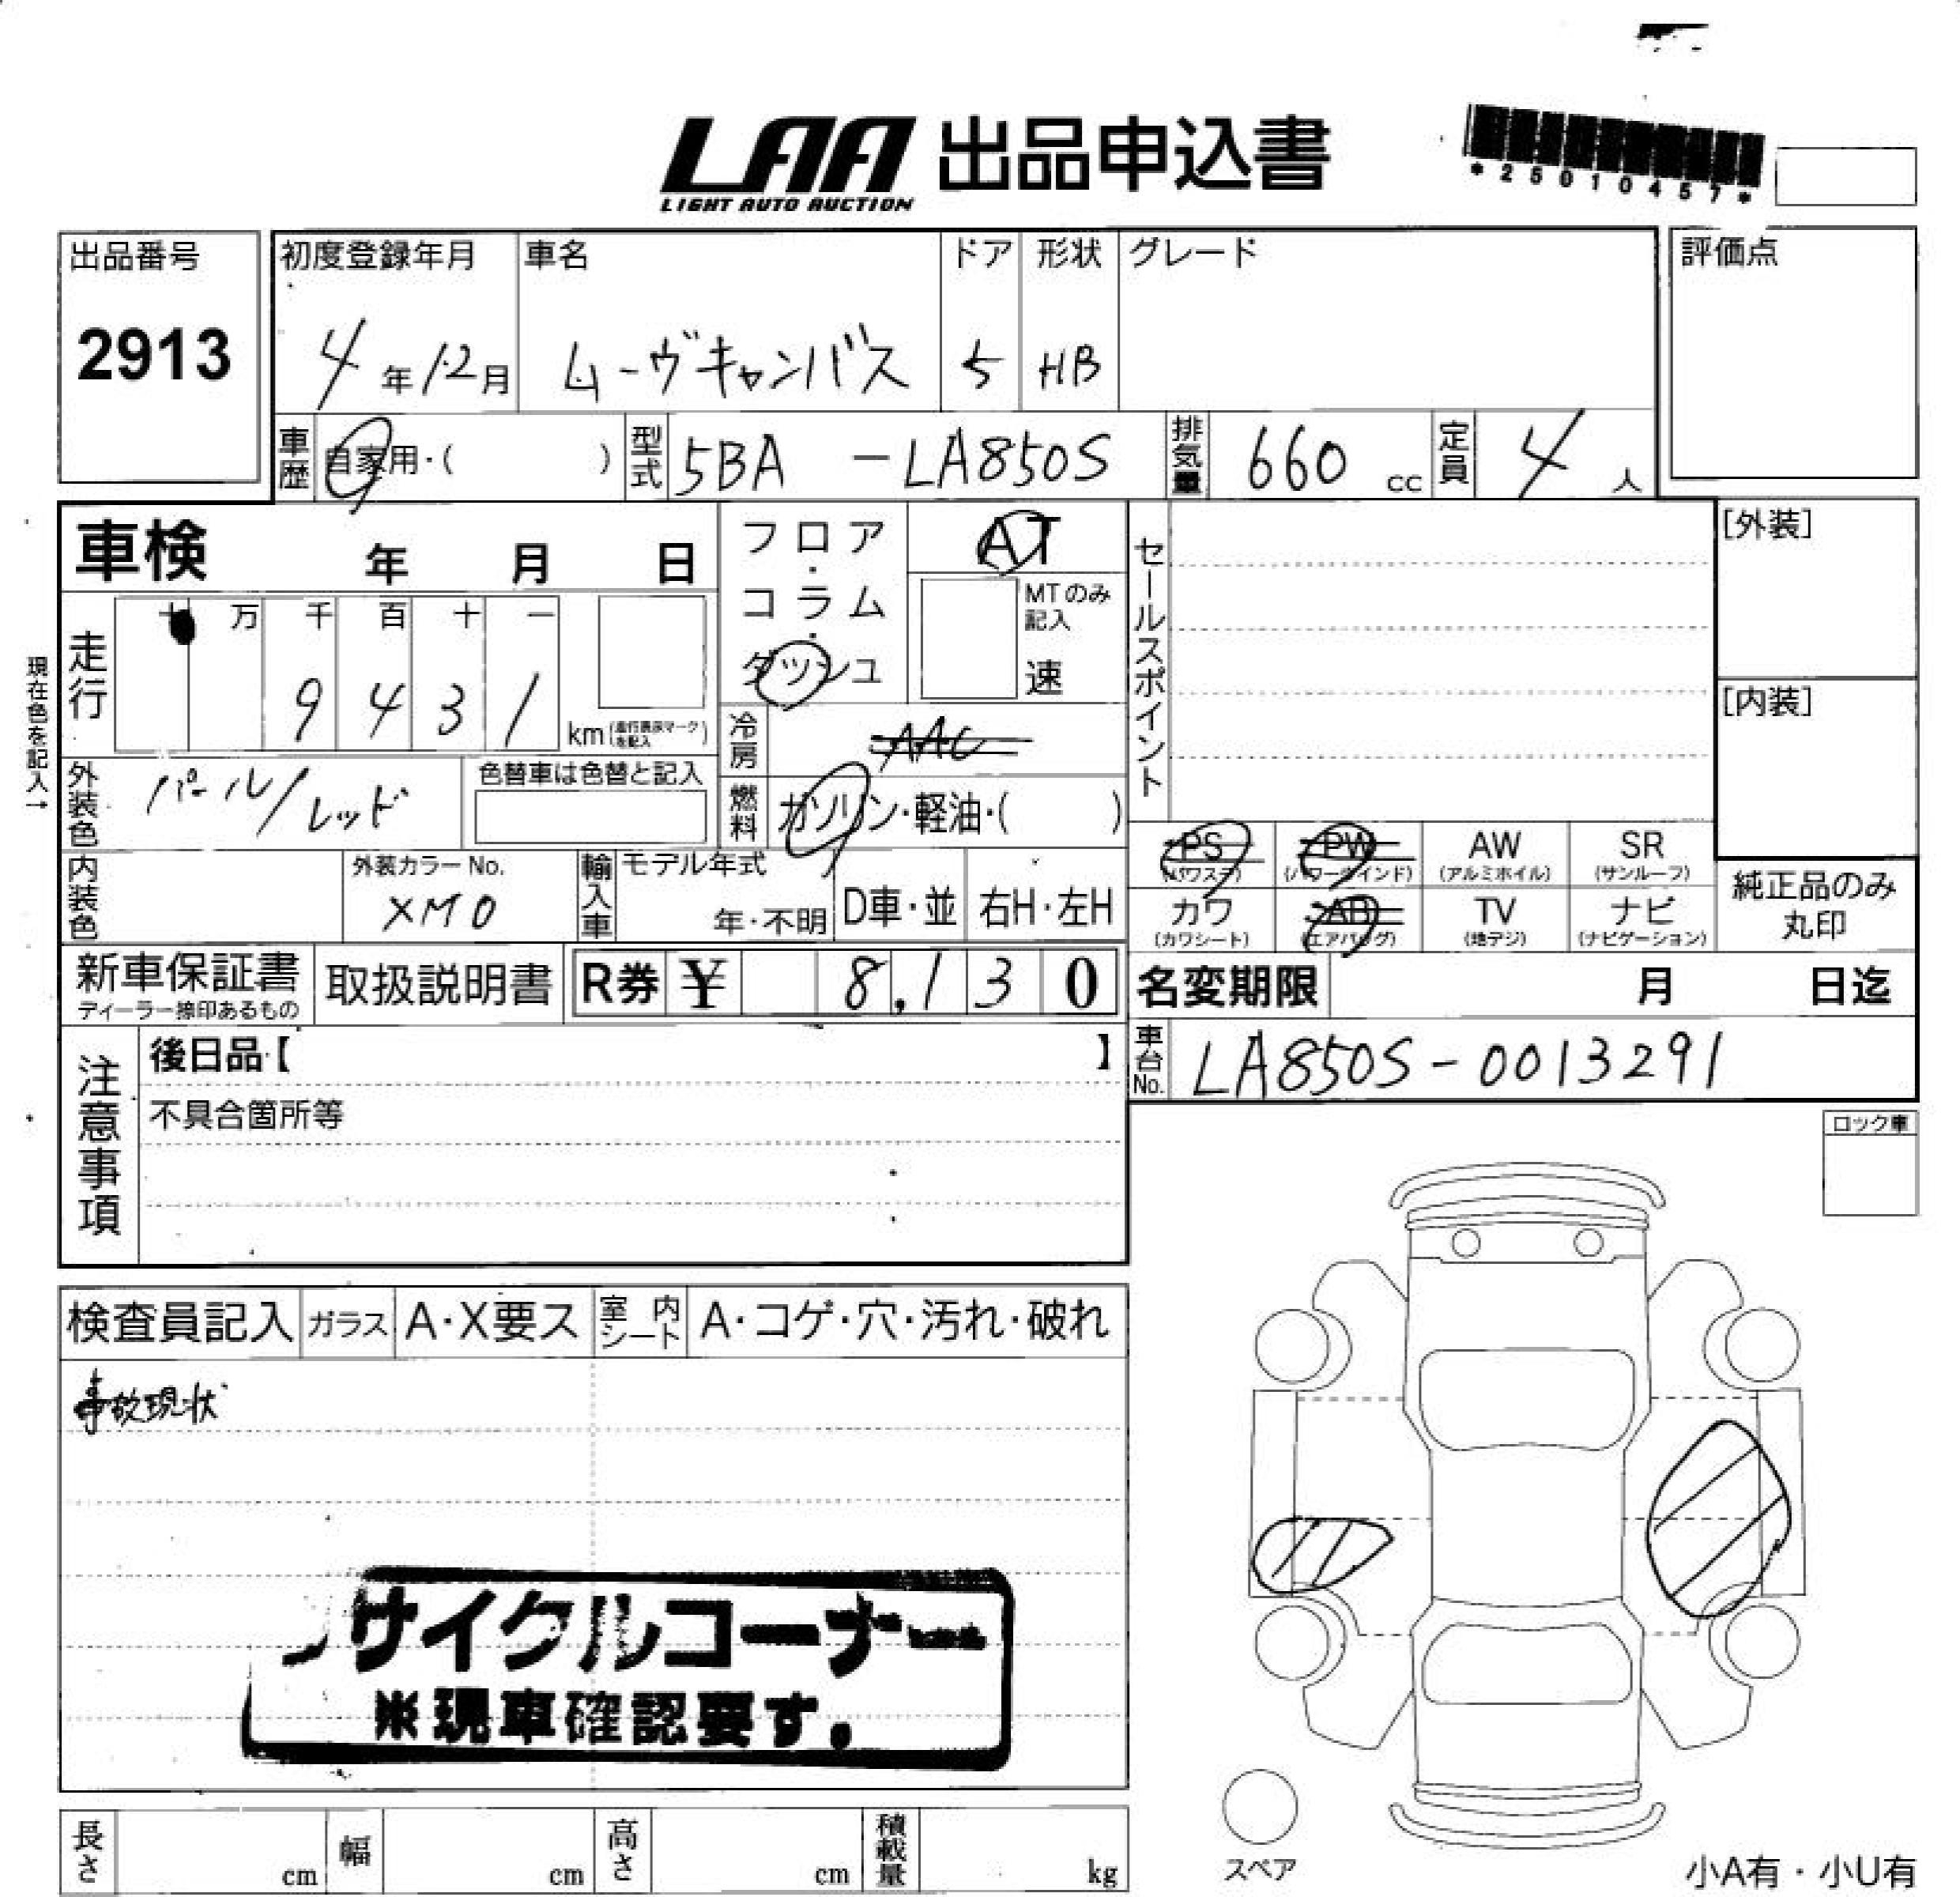 LAA 出品申込書
LIGHT AUTO AUCTION
*25010457*
出品番号
2913
初度登録年月
4年12月
車名
ムーヴキャンバス
ドア
5
形状
HB
グレード
評価点
車歴 自家用・( )
型式 5BA -LA850S
排気量 660 cc
定員 4 人
車検 年 月 日
フロア・コラム・ダッシュ
AT
MTのみ記入
速
セールスポイント
[外装]
[内装]
現在色を記入→
走行
万 千 百 十 一
9 4 3 1
km
冷房 AAC
外装色 パール/レッド
色替車は色替と記入
燃料 ガソリン・軽油・( )
PS (パワステ)
PW (パワーウインド)
AW (アルミホイル)
SR (サンルーフ)
カワ (カワシート)
AB (エアバッグ)
TV (地デジ)
ナビ (ナビゲーション)
純正品のみ
丸印
内装色
外装カラーNo.
XM0
輸入車
モデル年式
年・不明
D車・並
右H・左H
新車保証書
ディーラー捺印あるもの
取扱説明書
R券 ¥ 8,130
名変期限 月 日迄
車台No. LA850S-0013291
注意事項
後日品【 】
不具合箇所等
ロック車
検査員記入
ガラス A・X要ス
室内シート A・コゲ・穴・汚れ・破れ
事故現状
サイクルコーナー
※現車確認要す.
スペア
長さ cm
幅 cm
高さ cm
積載量 kg
小A有・小U有